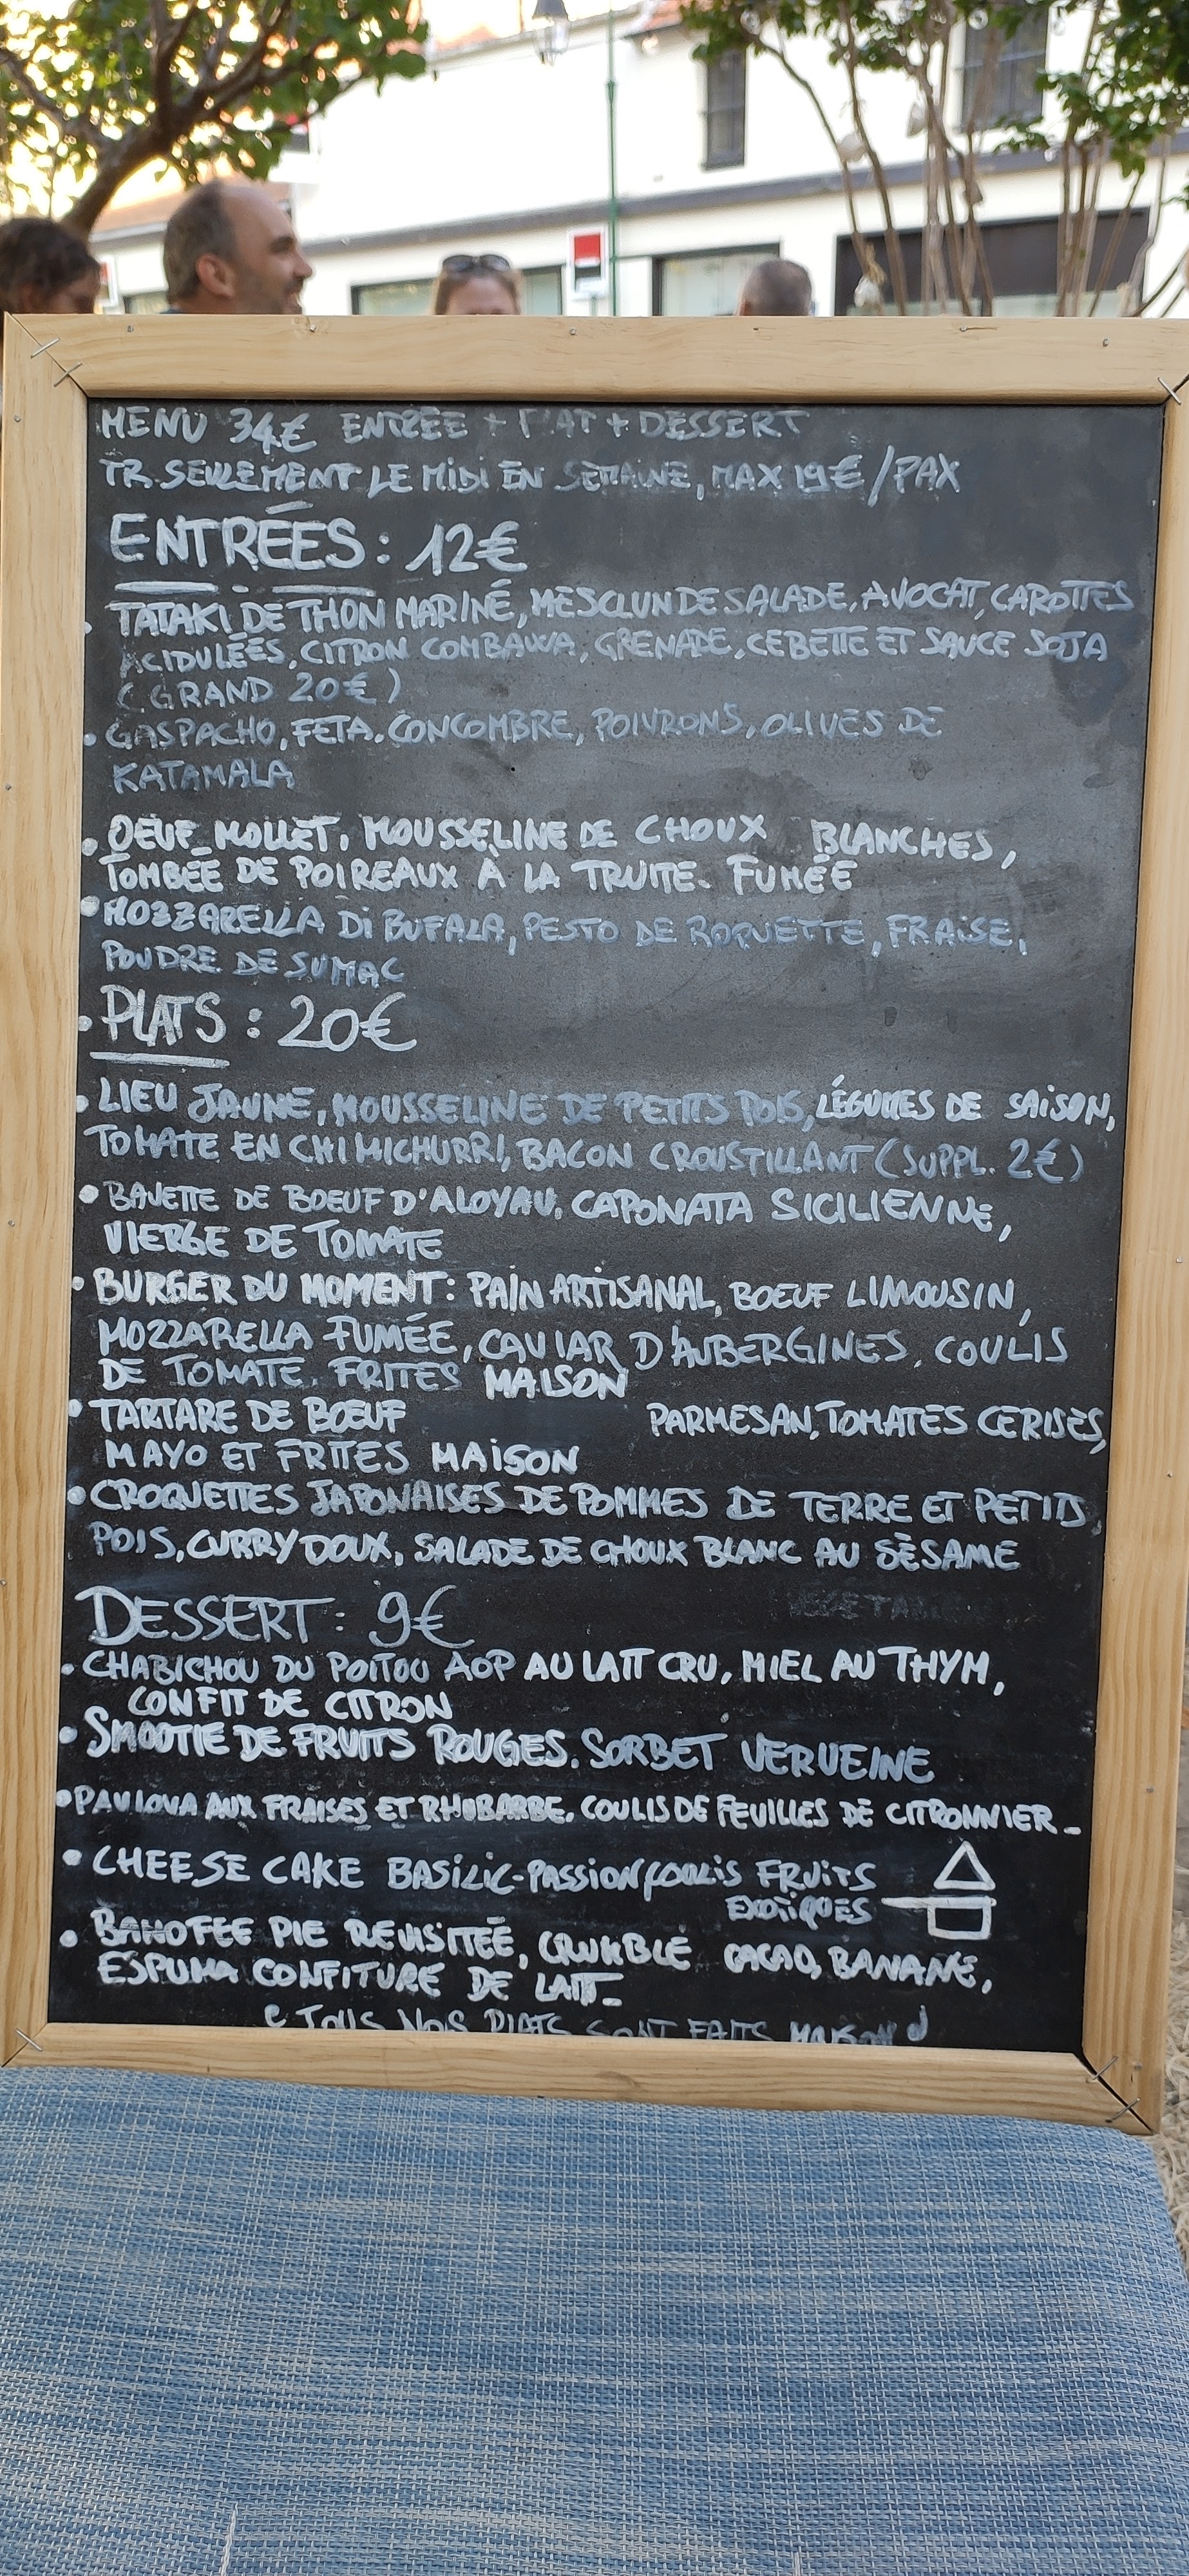 MENU 34€ ENTRÉE + PLAT + DESSERT
TR. SEULEMENT LE MIDI EN SEMAINE, MAX 19€/PAX
ENTRÉES : 12€
. TATAKI DE THON MARINÉ, MESCLUN DE SALADE, AVOCAT, CAROTTES
ACIDULÉES, CITRON COMBAWA, GRENADE, CEBETTE ET SAUCE SOJA
(GRAND 20€)
. GASPACHO, FETA, CONCOMBRE, POIVRONS, OLIVES DE
KATAMALA
. OEUF MOLLET, MOUSSELINE DE CHOUX BLANCHES,
TOMBÉE DE POIREAUX À LA TRUITE. FUMÉE
• MOZZARELLA DI BUFALA, PESTO DE ROQUETTE, FRAISE,
POUDRE DE SUMAC
• PLATS : 20€
• LIEU JAUNE, MOUSSELINE DE PETITS POIS, LÉGUMES DE SAISON,
TOMATE EN CHIMICHURRI, BACON CROUSTILLANT (SUPPL. 2€)
• BAVETTE DE BOEUF D'ALOYAU, CAPONATA SICILIENNE,
VIERGE DE TOMATE
• BURGER DU MOMENT : PAIN ARTISANAL, BOEUF LIMOUSIN,
MOZZARELLA FUMÉE, CAVIAR D'AUBERGINES, COULIS
DE TOMATE, FRITES MAISON
• TARTARE DE BOEUF PARMESAN, TOMATES CERISES,
MAYO ET FRITES MAISON
• CROQUETTES JAPONAISES DE POMMES DE TERRE ET PETITS
POIS, CURRY DOUX, SALADE DE CHOUX BLANC AU SÈSAME
DESSERT : 9€
• CHABICHOU DU POITOU AOP AU LAIT CRU, MIEL AU THYM,
CONFIT DE CITRON
• SMOOTIE DE FRUITS ROUGES. SORBET VERVEINE
• PAVLOVA AUX FRAISES ET RHUBARBE. COULIS DE FEUILLES DE CITRONNIER_
• CHEESE CAKE BASILIC-PASSION, COULIS FRUITS
EXOTIQUES
• BANOFFEE PIE REVISITÉE, CRUMBLE CACAO, BANANE,
ESPUMA CONFITURE DE LAIT_
TOUS NOS PLATS SONT FAITS MAISON